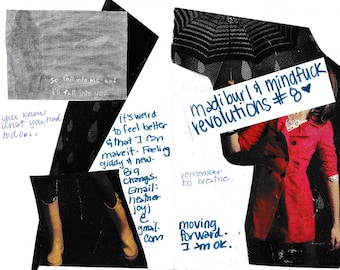 so fall into me, and
i'll fall into you
you know
what you had
to do...
it's weird
to feel better
& that I can
make it. Feeling
giddy & new.
Big
Changs.
Email:
heather
joyj
@
gmail.
com
mad i burl & mindfuck
revolutions #8 ♥
remember
to breathe.
moving
forward.
I am ok.